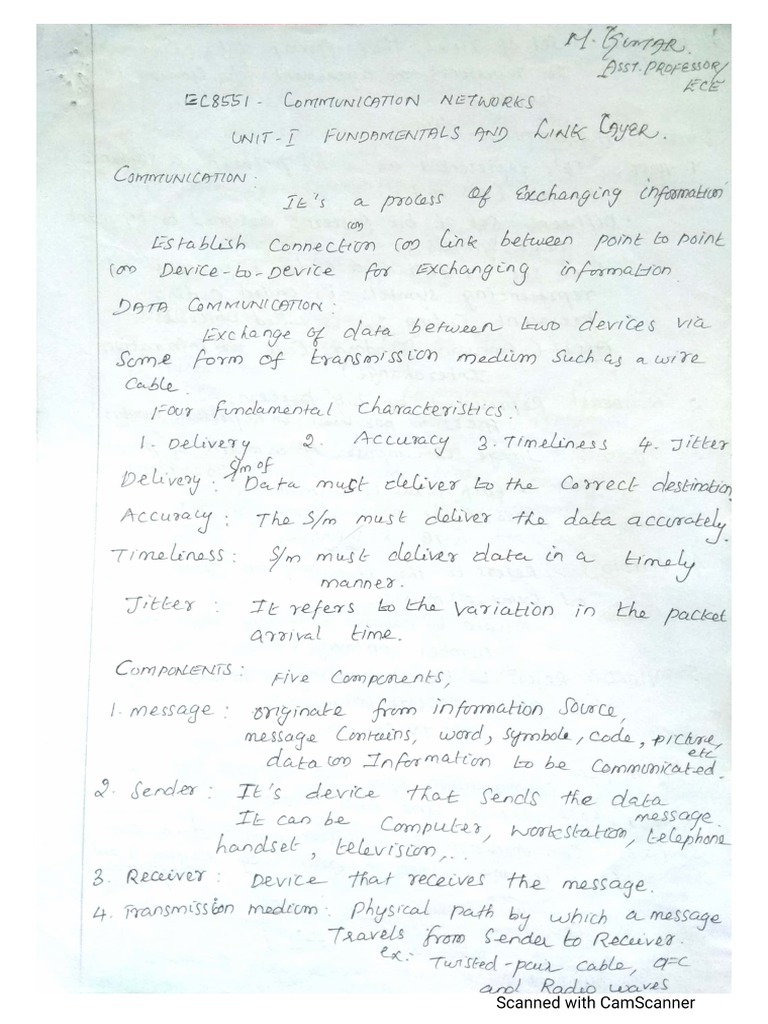 M. KUMAR.
ASST. PROFESSOR/
ECE
EC8551 - COMMUNICATION NETWORKS
UNIT-I FUNDAMENTALS AND LINK LAYER.
COMMUNICATION:
It's a process of Exchanging information
(or)
Establish Connection (or) link between point to point
(or) Device-to-Device for Exchanging information
DATA COMMUNICATION:
Exchange of data between two devices via
Some form of transmission medium such as a wire
Cable.
Four Fundamental Characteristics:
1. Delivery 2. Accuracy 3. Timeliness 4. Jitter
S/m of
Delivery: Data must deliver to the Correct destination
Accuracy: The S/m must deliver the data accurately.
Timeliness: S/m must deliver data in a timely
manner.
Jitter: It refers to the Variation in the packet
arrival time.
COMPONENTS: Five Components,
1. message: originate from information Source,
message Contains, word, symbols, code, picture,
etc
data (or) Information to be Communicated.
2. Sender: It's device that sends the data
message.
It can be Computer, workstation, telephone
handset, television,...
3. Receiver: Device that receives the message.
4. Transmission medium: Physical path by which a message
Travels from Sender to Receiver.
ex: Twisted-pair cable, OFC
and Radio waves
Scanned with CamScanner